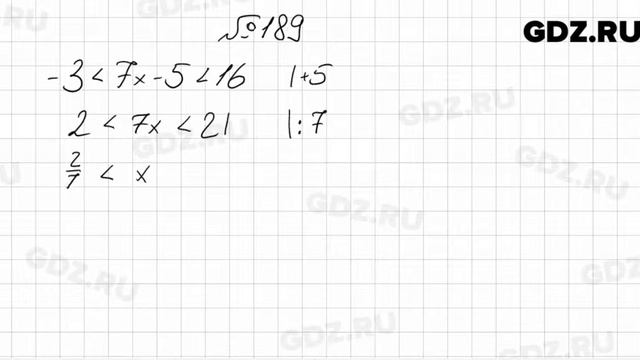 №189
GDZ.RU
-3 < 7x - 5 < 16 |+5
2 < 7x < 21 |:7
2/7 < x
GDZ.RU
GDZ.RU
GDZ.RU
GDZ.RU
GDZ.RU
GDZ.RU
GDZ.RU